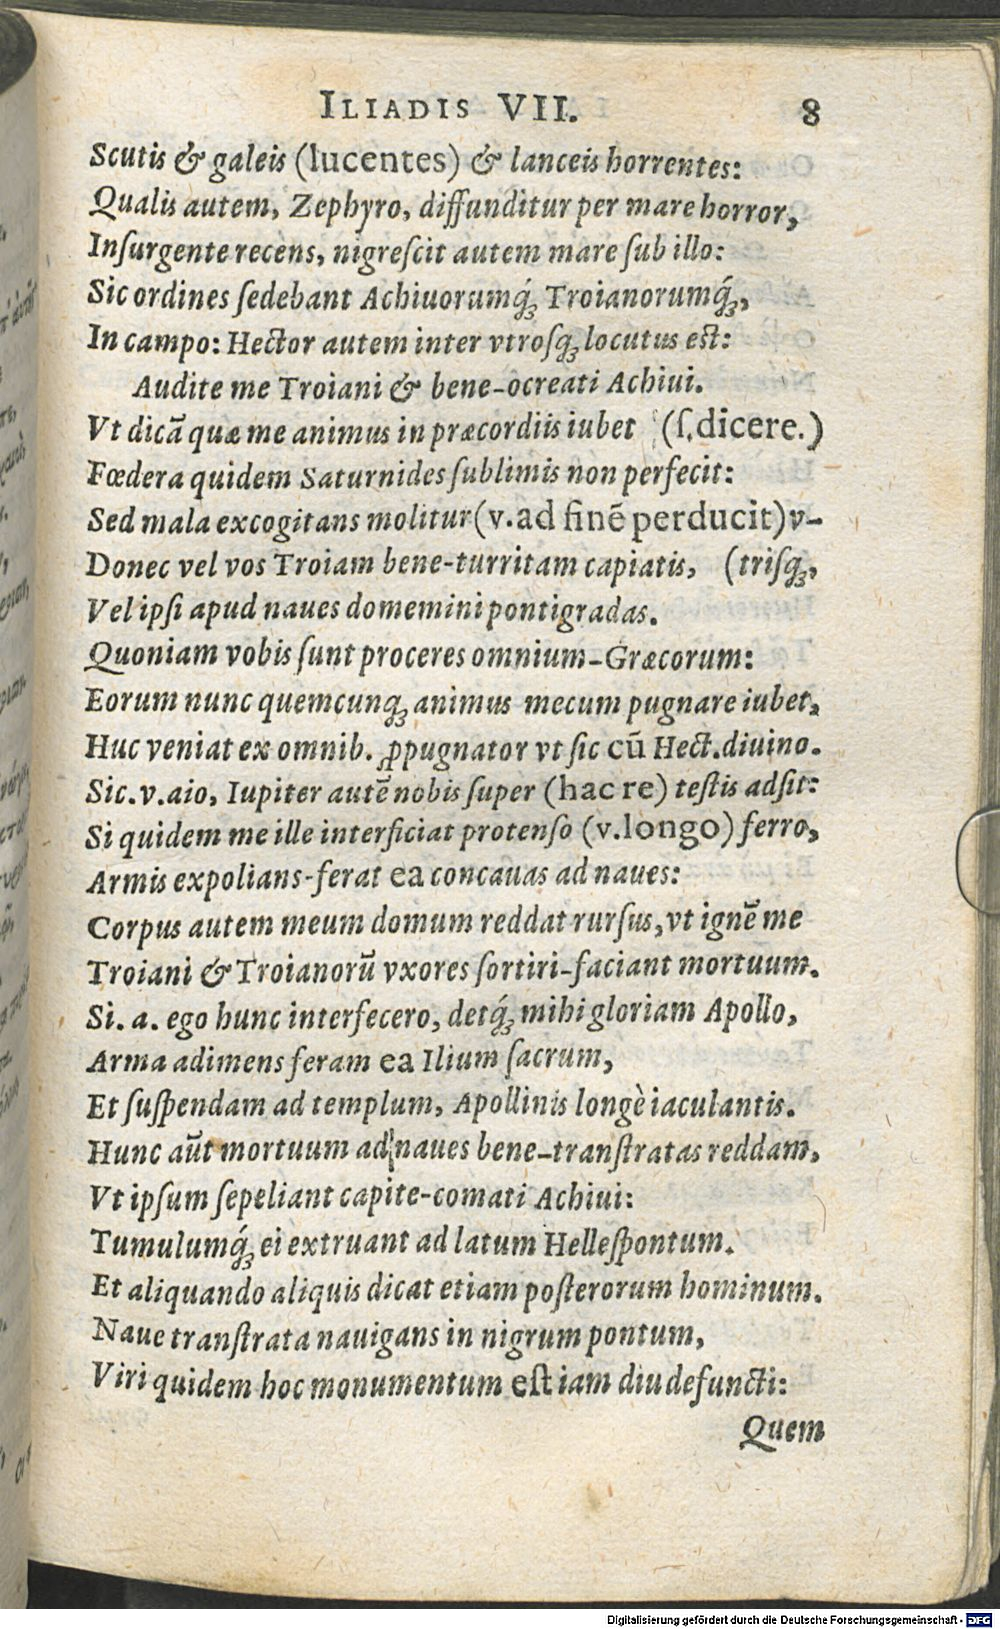 ILIADIS VII. 8
Scutis & galeis (lucentes) & lanceis horrentes:
Qualis autem, Zephyro, diffunditur per mare horror,
Inſurgente recens, nigreſcit autem mare ſub illo:
Sic ordines ſedebant Achiuorumq́ꝫ Troianorumq́ꝫ,
In campo: Hector autem inter vtroſqꝫ locutus eſt:
Audite me Troiani & bene-ocreati Achiui.
Vt dicā quæ me animus in præcordiis iubet (ſ. dicere.)
Fœdera quidem Saturnides ſublimis non perfecit:
Sed mala excogitans molitur (v. ad finē perducit) v-
Donec vel vos Troiam bene-turritam capiatis, (triſqꝫ,
Vel ipſi apud naues domemini pontigradas.
Quoniam vobis ſunt proceres omnium-Græcorum:
Eorum nunc quemcunqꝫ animus mecum pugnare iubet,
Huc veniat ex omnib. ꝓpugnator vt ſic cū Hect. diuino.
Sic. v. aio, Iupiter autē nobis ſuper (hac re) teſtis adſit:
Si quidem me ille interficiat protenſo (v. longo) ferro,
Armis expolians-ferat ea concauas ad naues:
Corpus autem meum domum reddat rurſus, vt ignē me
Troiani & Troianorū vxores ſortiri-faciant mortuum.
Si. a. ego hunc interfecero, detq́ꝫ mihi gloriam Apollo,
Arma adimens feram ea Ilium ſacrum,
Et ſuſpendam ad templum, Apollinis longè iaculantis.
Hunc aūt mortuum ad naues bene-tranſtratas reddam,
Vt ipſum ſepeliant capite-comati Achiui:
Tumulumq́ꝫ ei extruant ad latum Helleſpontum.
Et aliquando aliquis dicat etiam poſterorum hominum.
Naue tranſtrata nauigans in nigrum pontum,
Viri quidem hoc monumentum eſt iam diu defuncti:
Quem
Digitalisierung gefördert durch die Deutsche Forschungsgemeinschaft - DFG